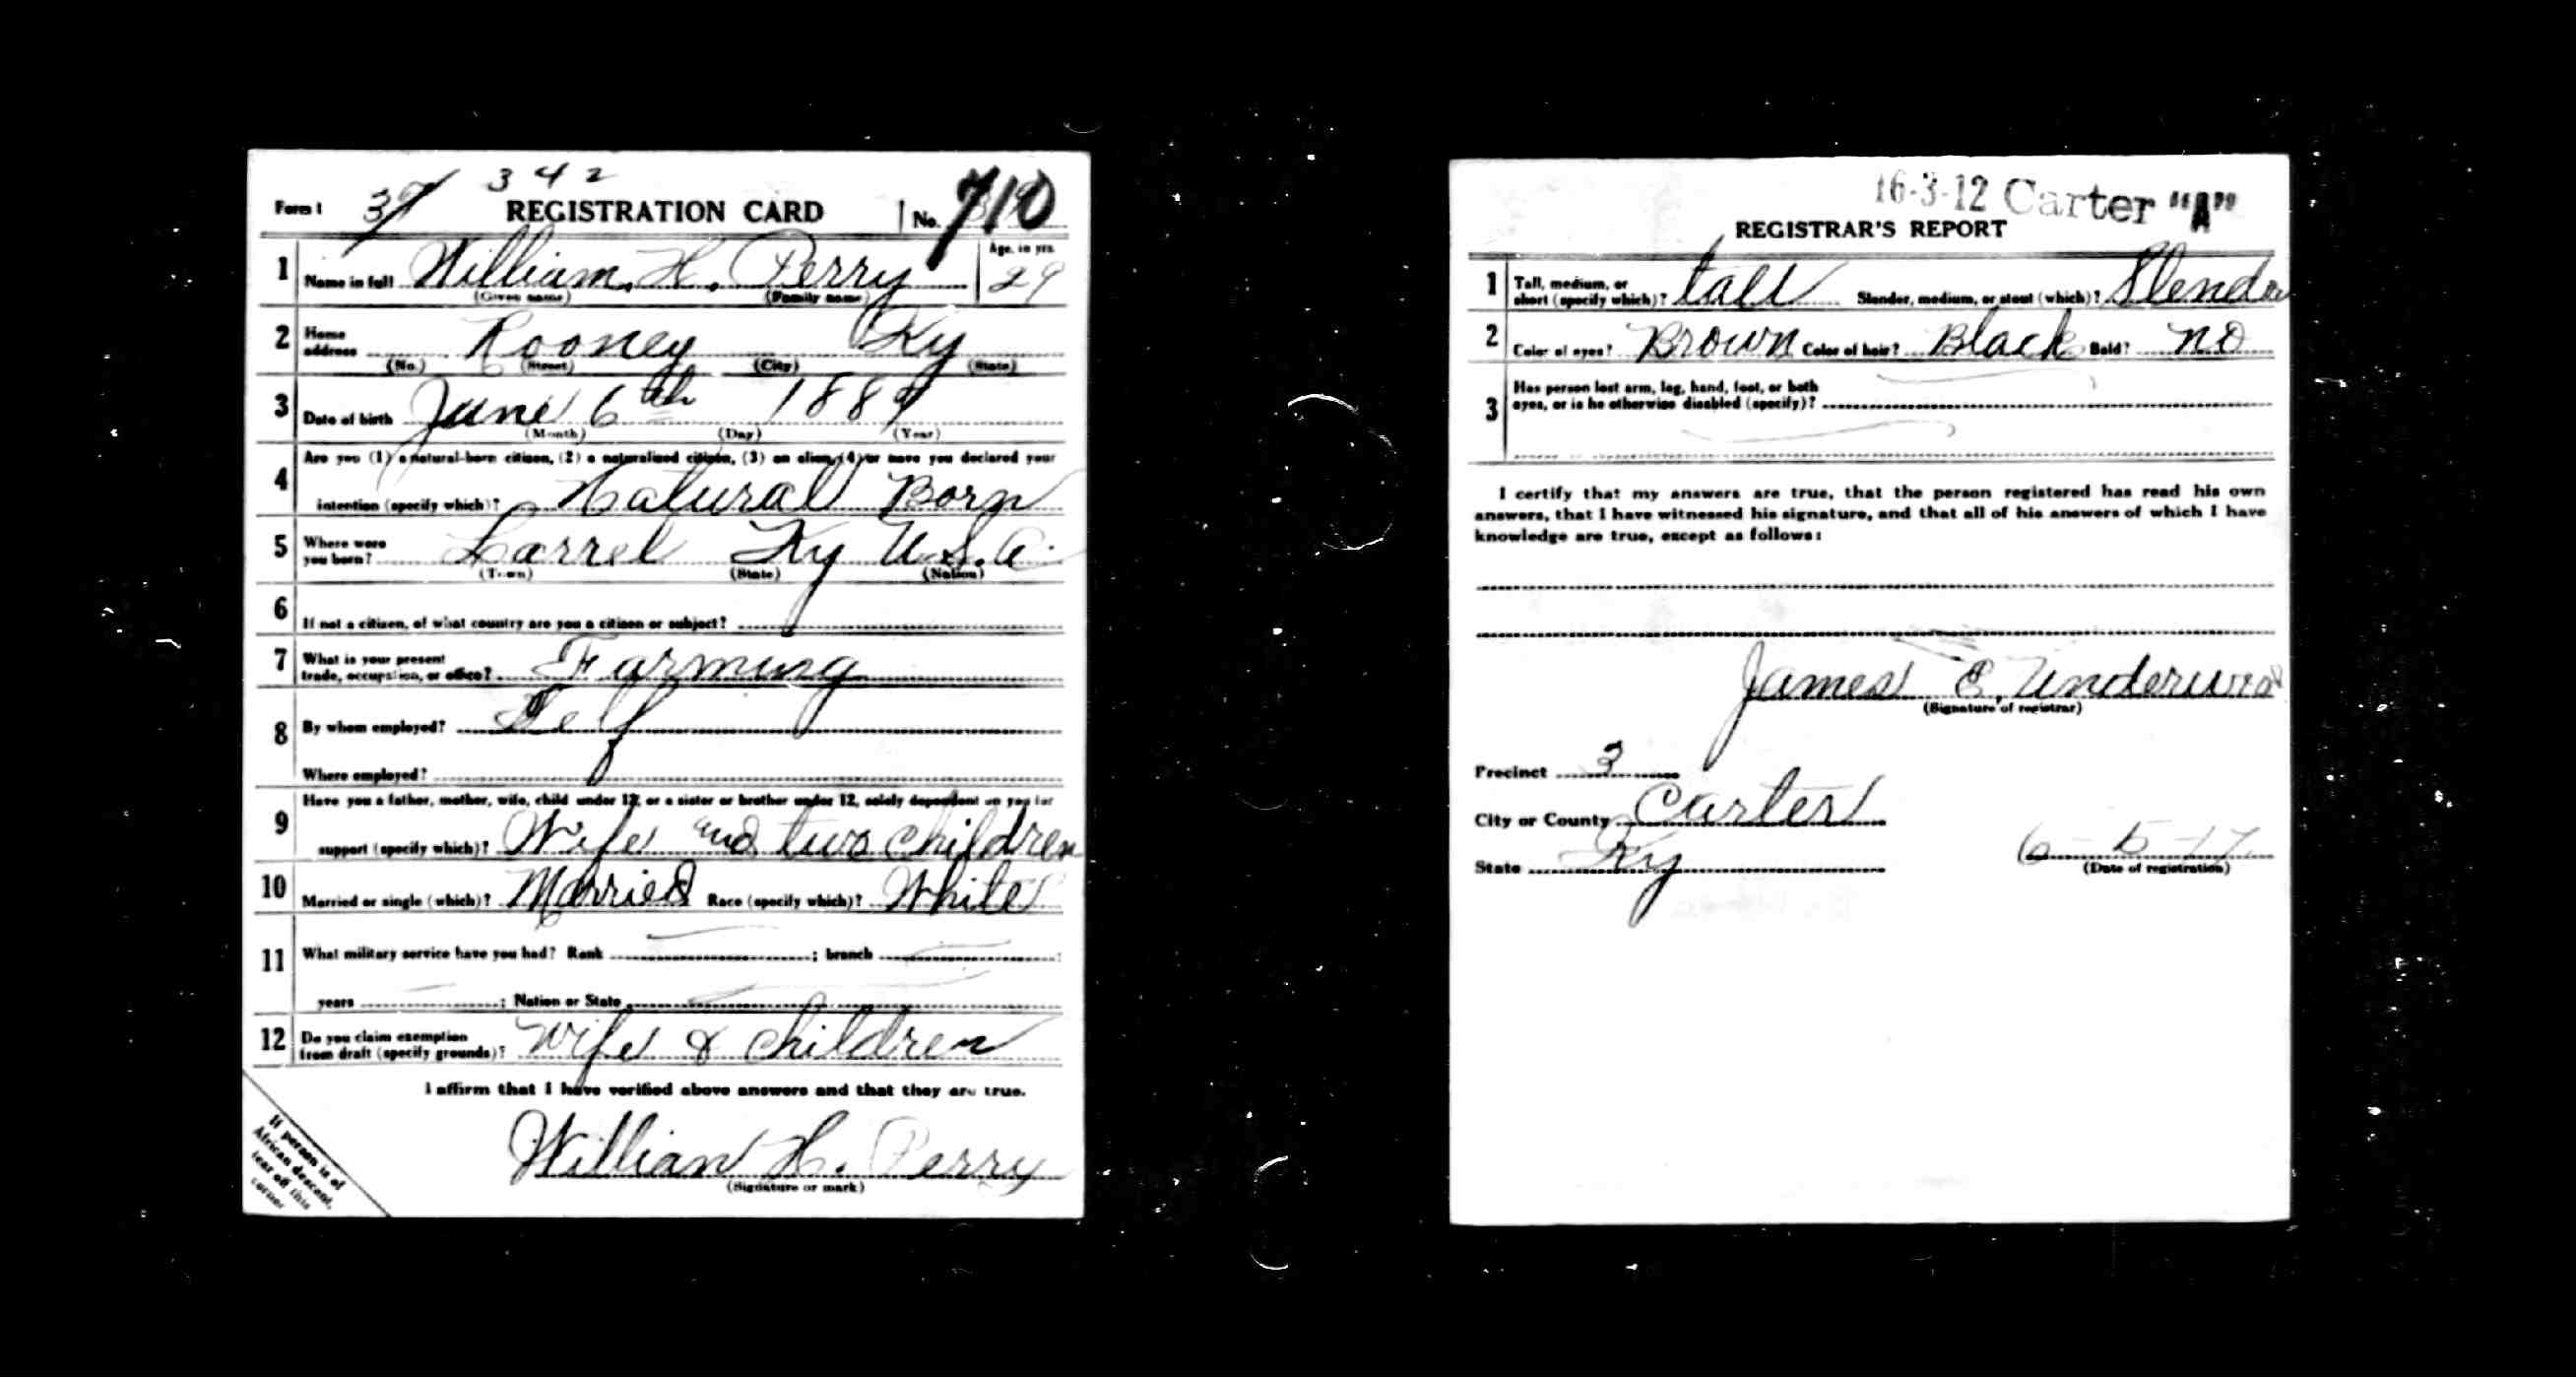 342
Form 1 37 REGISTRATION CARD No. 710
1 Name in full William. H. Perry Age, in yrs. 29
(Given name) (Family name)
2 Home address Rooney Ky
(No.) (Street) (City) (State)
3 Date of birth June 6th 1889
(Month) (Day) (Year)
4 Are you (1) a natural-born citizen, (2) a naturalized citizen, (3) an alien, (4) or have you declared your
intention (specify which)? Natural Born
5 Where were you born? Larrel Ky U.S.A.
(Town) (State) (Nation)
6 If not a citizen, of what country are you a citizen or subject?
7 What is your present trade, occupation, or office? Farming
8 By whom employed? Self
Where employed?
9 Have you a father, mother, wife, child under 12, or a sister or brother under 12, solely dependent on you for
support (specify which)? Wife and two children
10 Married or single (which)? Married Race (specify which)? White
11 What military service have you had? Rank ; branch
years ; Nation or State
12 Do you claim exemption from draft (specify grounds)? Wife & children
I affirm that I have verified above answers and that they are true.
Willian H. Perry
(Signature or mark)
If person is of
African descent,
tear off this
corner
16-3-12 Carter "A"
REGISTRAR'S REPORT
1 Tall, medium, or short (specify which)? tall Slender, medium, or stout (which)? Slender
2 Color of eyes? Brown Color of hair? Black Bald? no
3 Has person lost arm, leg, hand, foot, or both eyes, or is he otherwise disabled (specify)?
I certify that my answers are true, that the person registered has read his own
answers, that I have witnessed his signature, and that all of his answers of which I have
knowledge are true, except as follows:
James E. Underwood
(Signature of registrar)
Precinct 3
City or County Carter
State Ky 6-5-17
(Date of registration)